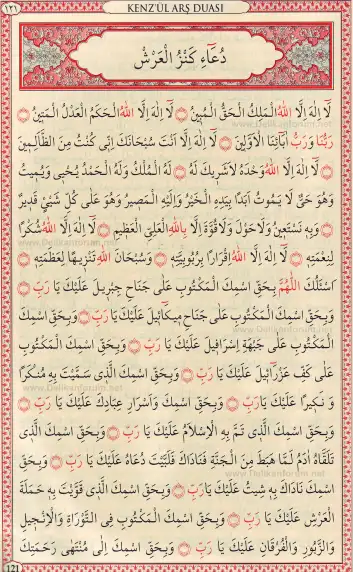 ١٢١ KENZ'ÜL ARŞ DUASI
دُعَاءِ كَنْزُ الْعَرْشِ
لَٓا اِلٰهَ اِلَّا اللّٰهُ الْمَلِكُ الْحَقُّ الْمُبِينُ لَٓا اِلٰهَ اِلَّا اللّٰهُ الْحَكَمُ الْعَدْلُ الْمَتِينُ
رَبُّنَا وَرَبُّ اٰبَٓائِنَا الْاَوَّلِينَ لَٓا اِلٰهَ اِلَّا اَنْتَ سُبْحَانَكَ اِنِّى كُنْتُ مِنَ الظَّالِمِينَ
لَٓا اِلٰهَ اِلَّا اللّٰهُ وَحْدَهُ لَاشَرِيكَ لَهُ لَهُ الْمُلْكُ وَلَهُ الْحَمْدُ يُحْيِى وَيُمِيتُ
وَهُوَ حَىٌّ لَا يَمُوتُ اَبَدًا بِيَدِهِ الْخَيْرُ وَاِلَيْهِ الْمَصِيرُ وَهُوَ عَلٰى كُلِّ شَيْئٍ قَدِيرٌ
وَبِهِ نَسْتَعِينُ وَلَاحَوْلَ وَلَاقُوَّةَ اِلَّا بِاللّٰهِ الْعَلِىِّ الْعَظِيمِ لَٓا اِلٰهَ اِلَّا اللّٰهُ شُكْرًا
لِنِعْمَتِهِ لَٓا اِلٰهَ اِلَّا اللّٰهُ اِقْرَارًا بِرُبُوبِيَّتِهِ وَسُبْحَانَ اللّٰهِ تَنْزِيهًا لِعَظَمَتِهِ
اَسْئَلُكَ اللّٰهُمَّ بِحَقِّ اسْمِكَ الْمَكْتُوبِ عَلٰى جَنَاحِ جِبْرِيلَ عَلَيْكَ يَا رَبِّ
وَبِحَقِّ اسْمِكَ الْمَكْتُوبِ عَلٰى جَنَاحِ مِيكَٓائِيلَ عَلَيْكَ يَا رَبِّ وَبِحَقِّ اسْمِكَ
الْمَكْتُوبِ عَلٰى جَبْهَةِ اِسْرَافِيلَ عَلَيْكَ يَا رَبِّ وَبِحَقِّ اسْمِكَ الْمَكْتُوبِ
عَلٰى كَفِّ عَزْرَٓائِيلَ عَلَيْكَ يَا رَبِّ وَبِحَقِّ اسْمِكَ الَّذِى سَمَّيْتَ بِهِ مُنْكَرًا
وَ نَكِيرًا عَلَيْكَ يَارَبِّ وَبِحَقِّ اسْمِكَ وَاَسْرَارِ عِبَادِكَ عَلَيْكَ يَا رَبِّ
وَبِحَقِّ اسْمِكَ الَّذِى تَمَّ بِهِ الْاِسْلَامُ عَلَيْكَ يَا رَبِّ وَبِحَقِّ اسْمِكَ الَّذِى
تَلَقَّاهُ اٰدَمُ لَمَّا هَبَطَ مِنَ الْجَنَّةِ فَنَادَاكَ فَلَبَّيْتَ دُعَاهُ عَلَيْكَ يَا رَبِّ وَبِحَقِّ
اسْمِكَ نَادَاكَ بِهِ شِيتُ عَلَيْكَ يَارَبِّ وَبِحَقِّ اسْمِكَ الَّذِى قَوَّيْتَ بِهِ حَمَلَةَ
الْعَرْشِ عَلَيْكَ يَا رَبِّ وَبِحَقِّ اسْمِكَ الْمَكْتُوبِ فِى التَّوْرَاةِ وَالْاِنْجِيلِ
وَالزَّبُورِ وَالْفُرْقَانِ عَلَيْكَ يَا رَبِّ وَبِحَقِّ اسْمِكَ اِلٰى مُنْتَهٰى رَحْمَتِكَ
121
www.Delikanforum.net